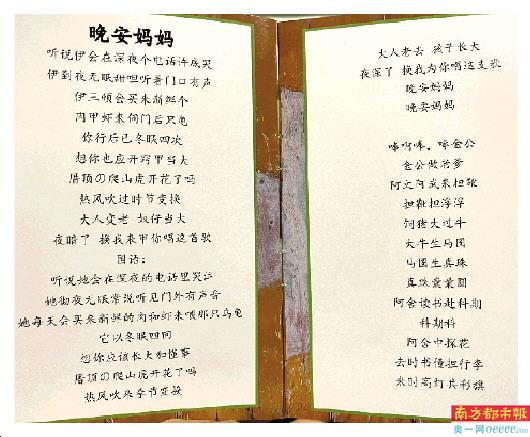 晚安妈妈
听说伊会在深夜个电话许底哭
伊到夜无眠甜呾听着门口有声
伊三顿会买来新鲜个
肉甲虾来饲门后只龟
你行后已冬眠四次
想你也应开窍甲当大
厝顶の爬山虎开花了吗
热风吹过时节变换
大人变老 奴仔当大
夜暗了 换我来甲你唱这首歌
国语：
听说她会在深夜的电话里哭泣
她彻夜无眠常说听见门外有声音
她每天会买来新鲜的肉和虾来喂那只乌龟
它以冬眠四回
想你应该长大和懂事
厝顶の爬山虎开花了吗
热风吹来季节变换
大人老去 孩子长大
夜深了 换我为你唱这支歌
晚安妈妈
晚安妈妈
嗱啊嗱，嗱金公
金公做老爹
阿文阿武来担靴
担靴担浮浮
饲猪大过牛
大牛生马囝
马囝生真珠
真珠
阿舍读书赴科期
科期科
阿舍中探花
去时书僮担行李
来时高灯共彩旗
南方都市报
奥一网oeeee.com